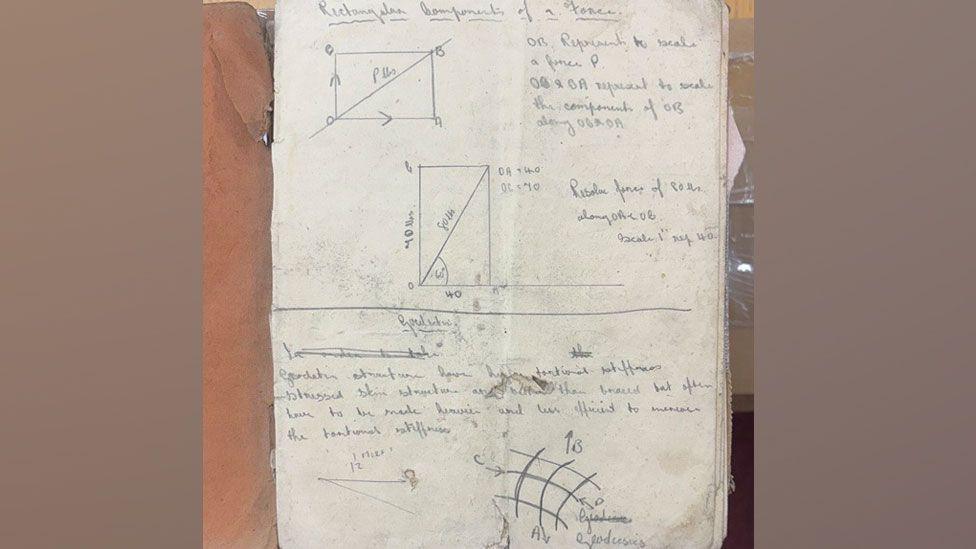 Rectangular Components of a Force.
C
B
P lbs
O
A
OB. Represents to scale
a force P.
OC & OA represent to scale
the components of OB
along OC & OA
OA = 40
OC = 70
Resolve force of 80 lbs
along OA & OB.
Scale 1" rep 40
70 lbs
80 lbs
O
40
A
Geodetic.
Geodetic structure have high torsional stiffness
stressed skin structure are than braced but often
have to be made heavier and less efficient to increase
the torsional stiffness
1
12
B
C
D
A
Geodesics